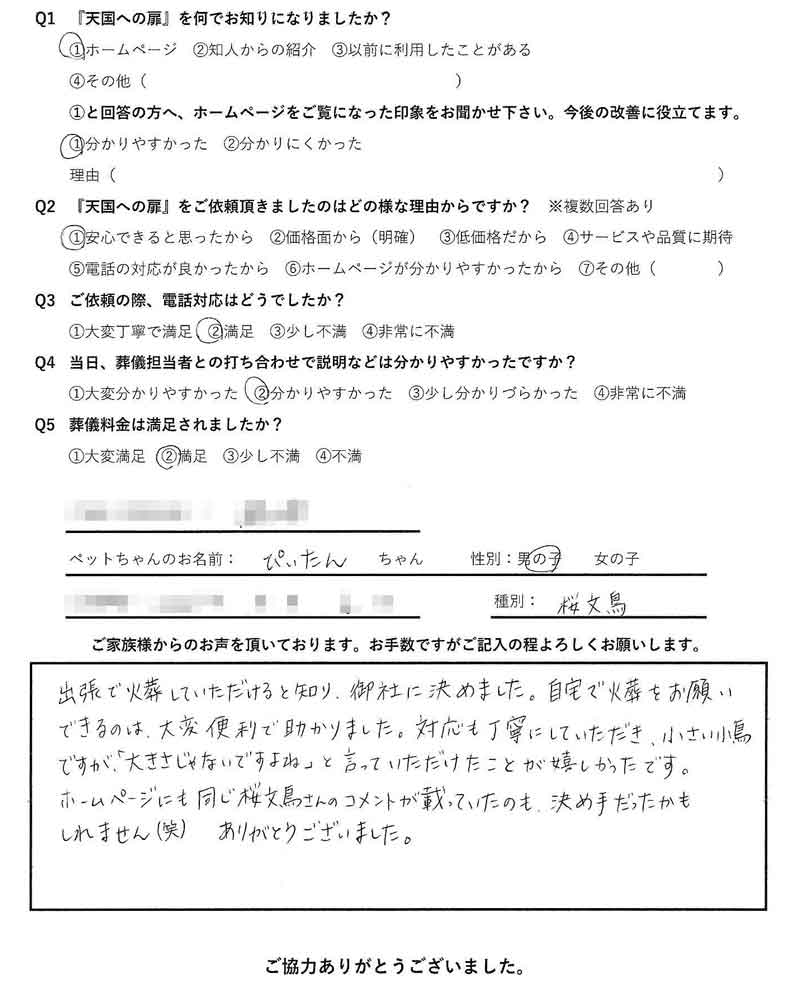 Q1 『天国への扉』を何でお知りになりましたか？
①ホームページ ②知人からの紹介 ③以前に利用したことがある
④その他（ ）
①と回答の方へ、ホームページをご覧になった印象をお聞かせ下さい。今後の改善に役立てます。
①分かりやすかった ②分かりにくかった
理由（ ）
Q2 『天国への扉』をご依頼頂きましたのはどの様な理由からですか？ ※複数回答あり
①安心できると思ったから ②価格面から（明確） ③低価格だから ④サービスや品質に期待
⑤電話の対応が良かったから ⑥ホームページが分かりやすかったから ⑦その他（ ）
Q3 ご依頼の際、電話対応はどうでしたか？
①大変丁寧で満足 ②満足 ③少し不満 ④非常に不満
Q4 当日、葬儀担当者との打ち合わせで説明などは分かりやすかったですか？
①大変分かりやすかった ②分かりやすかった ③少し分かりづらかった ④非常に不満
Q5 葬儀料金は満足されましたか？
①大変満足 ②満足 ③少し不満 ④不満
ペットちゃんのお名前： ぴぃたん ちゃん 性別：男の子 女の子
種別： 桜文鳥
ご家族様からのお声を頂いております。お手数ですがご記入の程よろしくお願いします。
出張で火葬していただけると知り、御社に決めました。自宅で火葬をお願い
できるのは、大変便利で助かりました。対応も丁寧にしていただき、小さい小鳥
ですが、「大きさじゃないですよね」と言っていただけたことが嬉しかったです。
ホームページにも同じ桜文鳥さんのコメントが載っていたのも、決め手だったかも
しれません（笑） ありがとうございました。
ご協力ありがとうございました。